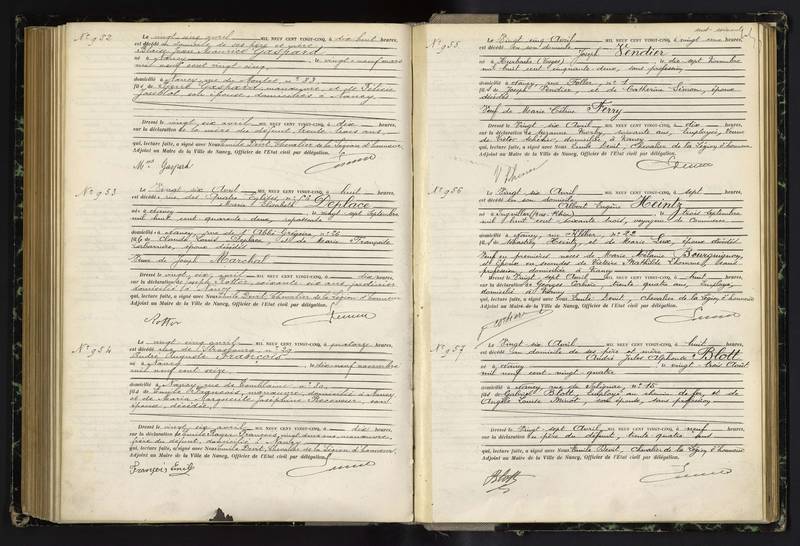 N° 952
Le vingt cinq avril MIL NEUF CENT VINGT-CINQ, à dix huit heures,
est décédé au domicile de ses père et mère
Jean Maurice Gaspard
né à Nancy le vingt neuf mars
mil neuf cent vingt cinq
domicilié à Nancy, rue du n° 33
fils de Gaspard, manœuvre, et de
son épouse, domiciliés à Nancy
Dressé le vingt six avril MIL NEUF CENT VINGT-CINQ, à dix heures,
sur la déclaration de la mère du défunt, trente trois ans,
qui, lecture faite, a signé avec Nous Emile Devit, Chevalier de la Légion d'honneur
Adjoint au Maire de la Ville de Nancy, Officier de l'Etat civil par délégation.
Mme Gaspard
N° 953
Le Vingt six Avril MIL NEUF CENT VINGT-CINQ, à huit heures,
est décédée rue des Quatre Eglises, n° 53
Elisabeth Deplace
née à Nancy le vingt sept Septembre
mil huit cent quarante deux, repasseuse
domiciliée à Nancy, rue de l'Abbé Grégoire, n° 20
fille de Claude Louis Deplace et de Marie Françoise
époux décédés
Veuve de Joseph Marchal
Dressé le vingt six avril MIL NEUF CENT VINGT-CINQ, à dix heures,
sur la déclaration de Joseph Rottor, soixante six ans, jardinier
domicilié à Nancy
qui, lecture faite, a signé avec Nous Emile Devit, Chevalier de la Légion d'honneur
Adjoint au Maire de la Ville de Nancy, Officier de l'Etat civil par délégation.
Rottor
N° 954
Le vingt cinq avril MIL NEUF CENT VINGT-CINQ, à quatorze heures,
est décédé rue de Strasbourg n° 29
Auguste François
né à Nancy le dix neuf novembre
mil neuf cent seize
domicilié à Nancy, rue de Tomblaine n° 20
fils de Emile François, manœuvre, domicilié à Nancy
et de Maria Joséphine son
épouse, décédée
Dressé le vingt six avril MIL NEUF CENT VINGT-CINQ, à dix heures,
sur la déclaration de Emile François, vingt deux ans, manœuvre,
frère du défunt, domicilié à Nancy
qui, lecture faite, a signé avec Nous Emile Devit, Chevalier de la Légion d'honneur
Adjoint au Maire de la Ville de Nancy, Officier de l'Etat civil par délégation.
François Emile
N° 955
Le Vingt cinq Avril MIL NEUF CENT VINGT-CINQ, à vingt une heures,
est décédé en son domicile
Joseph Vendier
né à (Vosges) le dix sept Novembre
mil huit cent cinquante deux, sans profession
domicilié à Nancy, rue n° 1
fils de Joseph Vendier, et de Catherine Simon, époux
décédés
Veuf de Marie Céline Ferry
Dressé le Vingt six Avril MIL NEUF CENT VINGT-CINQ, à dix heures,
sur la déclaration de Suzanne soixante ans, employée, veuve
de Victor domiciliée à Nancy
qui, lecture faite, a signé avec Nous Emile Devit, Chevalier de la Légion d'honneur
Adjoint au Maire de la Ville de Nancy, Officier de l'Etat civil par délégation.
N° 956
Le Vingt six Avril MIL NEUF CENT VINGT-CINQ, à sept heures,
est décédé en son domicile
Albert Eugène Heintz
né à Ingwiller (Bas-Rhin) le trois Septembre
mil huit cent soixante trois, voyageur de Commerce
domicilié à Nancy, rue Kléber, n° 22
fils de Sébastien Heintz, et de Marie Lux, époux décédés
Veuf en premières noces de Marie Mélanie Bourguignon,
et époux en secondes de Victoire Mathilde Thomme, sans
profession, domiciliée à Nancy
Dressé le Vingt sept Avril MIL NEUF CENT VINGT-CINQ, à huit heures,
sur la déclaration de Georges trente quatre ans, employé,
domicilié à Nancy
qui, lecture faite, a signé avec Nous Emile Devit, Chevalier de la Légion d'honneur
Adjoint au Maire de la Ville de Nancy, Officier de l'Etat civil par délégation.
N° 957
Le Vingt six Avril MIL NEUF CENT VINGT-CINQ, à huit heures,
est décédé au domicile de ses père et mère
Jules Alphonse Blott
né à Nancy le vingt trois Août
mil neuf cent vingt quatre
domicilié à Nancy, rue de n° 15
fils de Gabriel Blott, employé au chemin de fer, et de
Angèle Louise Minot, son épouse, sans profession
Dressé le Vingt sept Avril MIL NEUF CENT VINGT-CINQ, à neuf heures,
sur la déclaration du père du défunt, trente quatre ans
qui, lecture faite, a signé avec Nous Emile Devit, Chevalier de la Légion d'honneur
Adjoint au Maire de la Ville de Nancy, Officier de l'Etat civil par délégation.
Blott